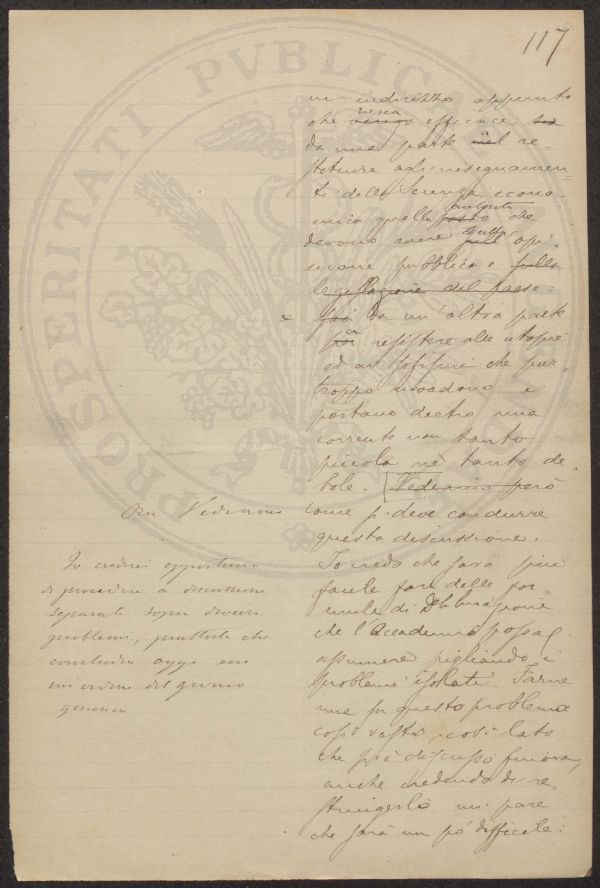 117
un indirizzo appunto
che riesca efficace
da una parte a re-
stituire agl'insegnamen-
ti della Scienza econo-
mica quella autorità che
devono avere sull'opi-
nione pubblica e sulla
legislazione del paese:
Da un'altra parte
a resistere alle utopie
ed ai sofismi che pur-
troppo invadono e
portano dietro una
corrente non tanto
piccola nè tanto de-
bole. [Vediamo però
Ora Vediamo
come si deve condurre
questa discussione.
Io credo che sarà più
facile fare delle for-
mule di
che l'Accademia possa
assumere pigliando i
problemi isolati. Farne
una su questo problema
così vasto, così lato
che si è discusso finora,
anche credendo di re-
stringerlo mi pare
che sarà un pó difficile:
Io crederei opportuno
di procedere a discussioni
separate sopra diversi
problemi, piuttosto che
concludere oggi con
un ordine del giorno
generico
PROSPERITATI PVBLICAE